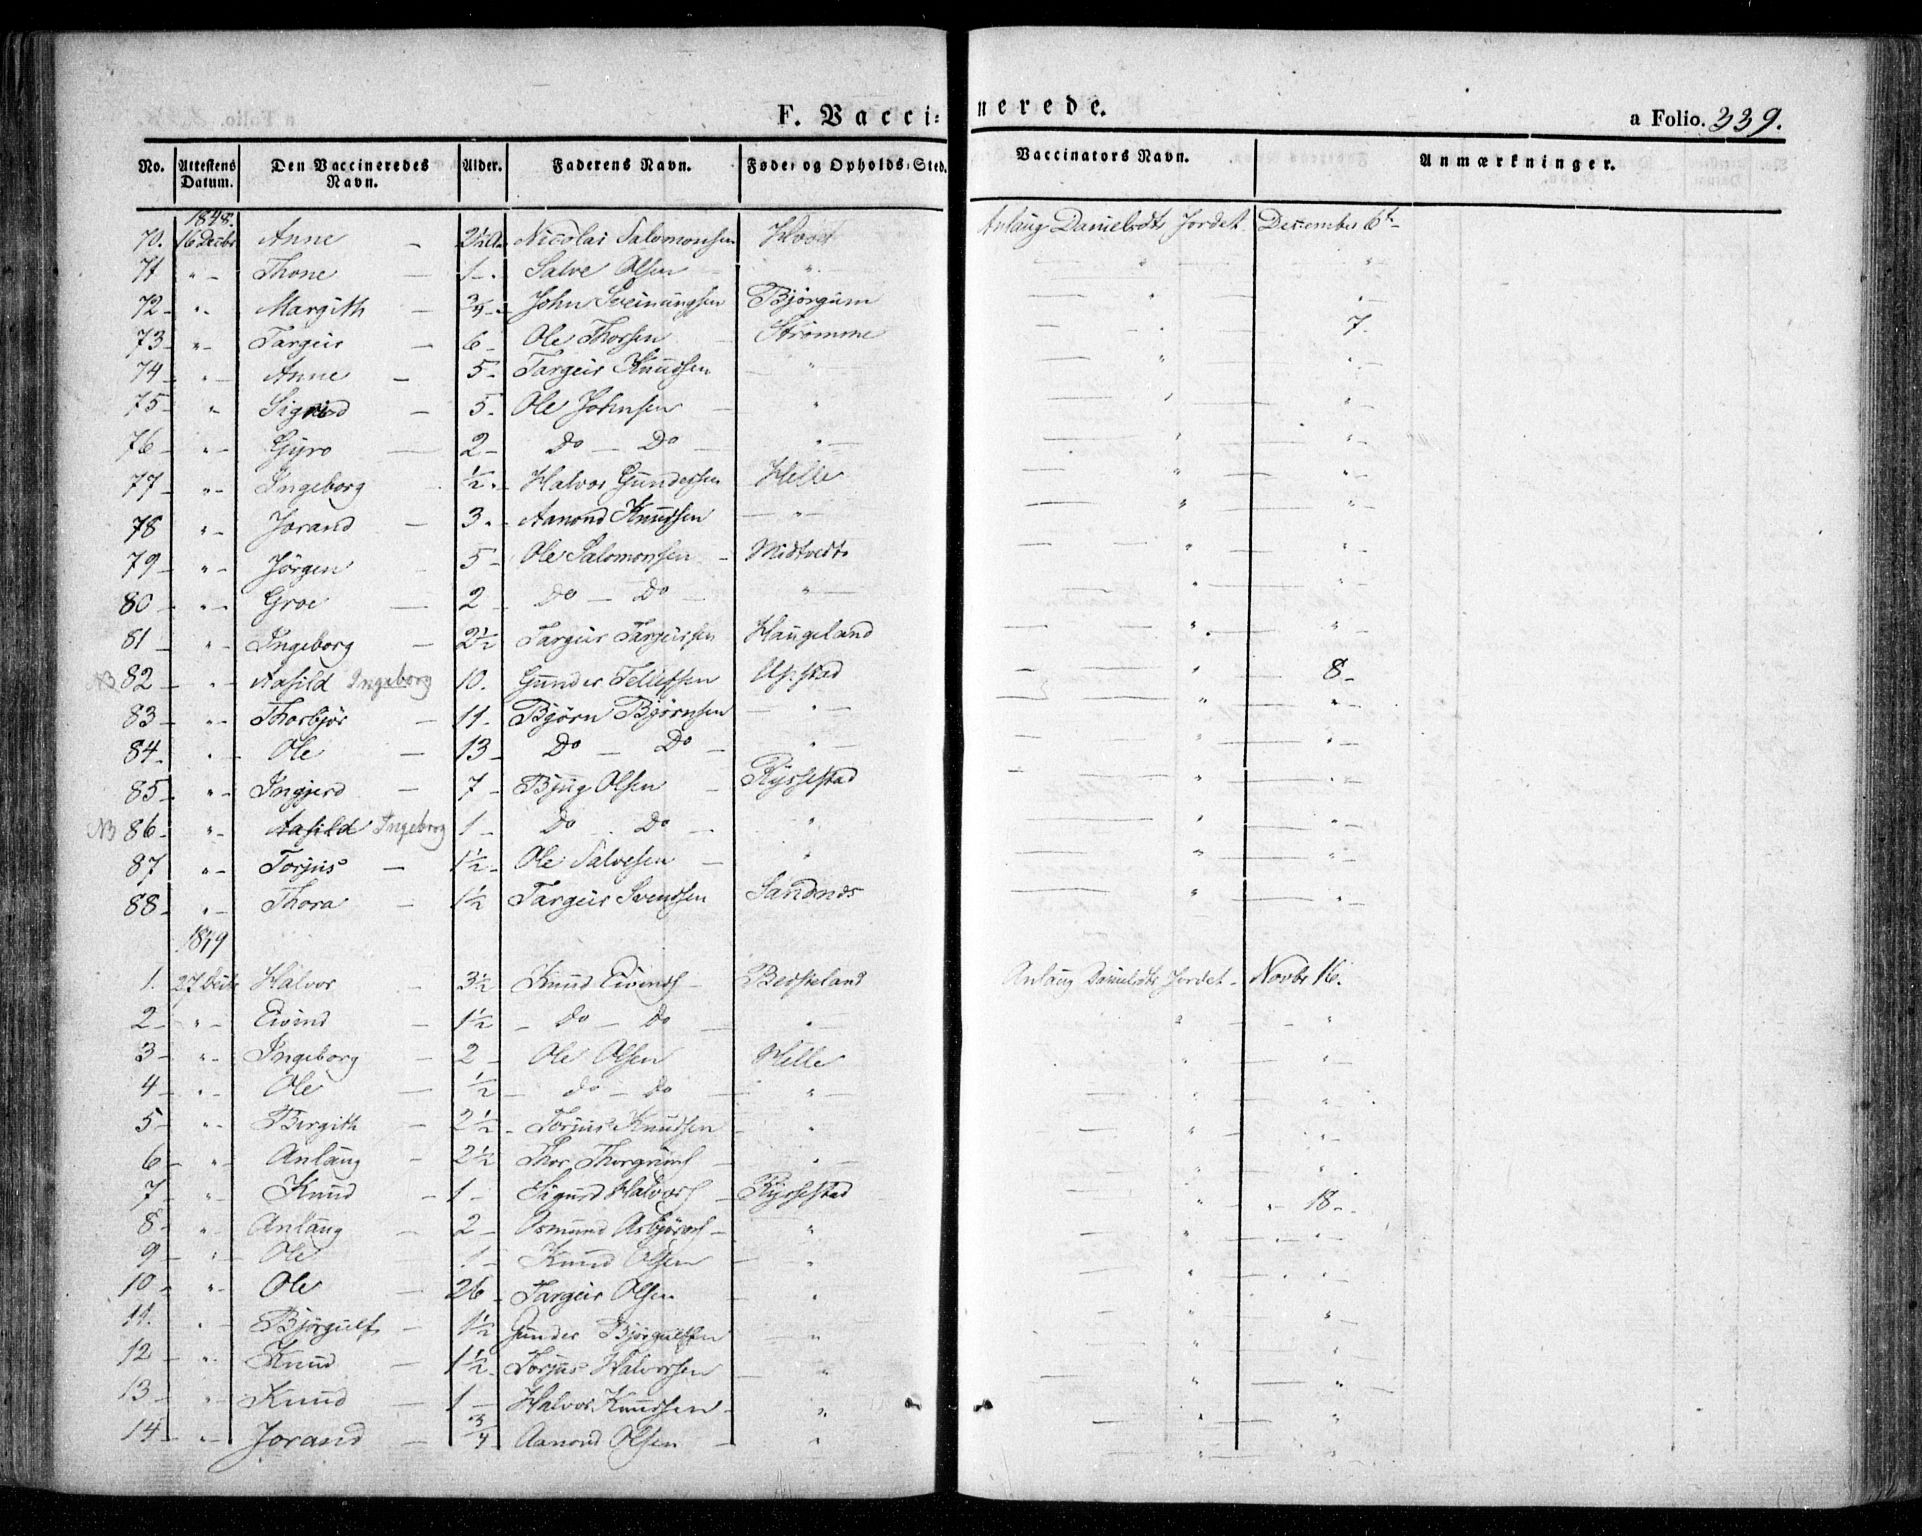 F. Vaccinerede. a Folio. 339.
No. Attestens Datum. Den Vaccineredes Navn. Alder. Faderens Navn. Føde- og Opholds-Sted. Vaccinators Navn. Anmærkninger.
1848.
70. 16 Decbr Anne – 2½ Nicolai Salomonsen Anlaug Danielsdtr Jordet December 6te
71 " – Thone – 1 – Salve Olsen " " "
72 – " – Margith – ¾ – John Sveinungsen Bjørgum " "
73 – " – Targeir – 6 – Ole Thorsen Strømme " 7
74 – " – Anne – 5 – Targeir Knudsen " " "
75 – " – Sigrid – 5 – Ole Johnsen – " " "
76 – " – Gyro – 2 – Do – Do " " "
77 – " – Ingeborg ½ – Halvor Gundersen Helle " "
78 " – Jorand – 3 – Aanond Knudsen – " – " "
79 – " – Jørgen – 5 – Ole Salomonsen – Midtvedt " "
80 – " – Groe – 2 Do – Do – " " "
81 – " – Ingeborg – 2½ Targeir Targeirsen Haugeland " "
NB 82 – " – Aasild Ingeborg 10. Gunder Tellefsen Upstad " 8 –
83 – " – Thorbjør – 11 – Bjørn Bjørnsen – " – " "
84 – " – Ole – 13 – Do – Do – " " "
85 – " – Ingjerd – 7 – Bjug Olsen – Rysstad " "
NB 86 – " – Aasild Ingeborg 1 – Do – Do – " " "
87 – " – Torjus – 1½ – Ole Salvesen – " " "
88 – " – Thora – 1½ Targeir Svendsen Sandnes " "
1849
1. 27 Halvor – 3½ Knud Eivinds – Besteland Anlaug Danielsdtr Jordet – Novbr 16.
2 – " – Eivind – 1½ – Do – Do – " " "
3 – " – Ingeborg – 2 – Ole Olsen Helle " "
4 – " – Ole – ½ – do – do – " – " "
5 – " – Bergith – 2½ – Torjus Knudsen – " " "
6 – " – Anlaug – 2½ Thor Thorgrims – " " "
7 – " Knud – 1 – Sigurd Halvors – Rysstad " 18 –
8 – " – Anlaug – 2 – Osmund Asbjørns – " " "
9 – " – Ole 1 – Knud Olsen – " " "
10 – " – Ole – 26 – Targeir Olsen " " "
11. " Bjørgulf – 1½ Gunder Bjørgulfsen – " " "
12 – " – Knud – 1½ – Torjus Halvorsen – " " "
13 – " Knud – 1 – Halvor Knudsen – " " "
14 – " – Jorand – ¾ Aanond Olsen – " " "